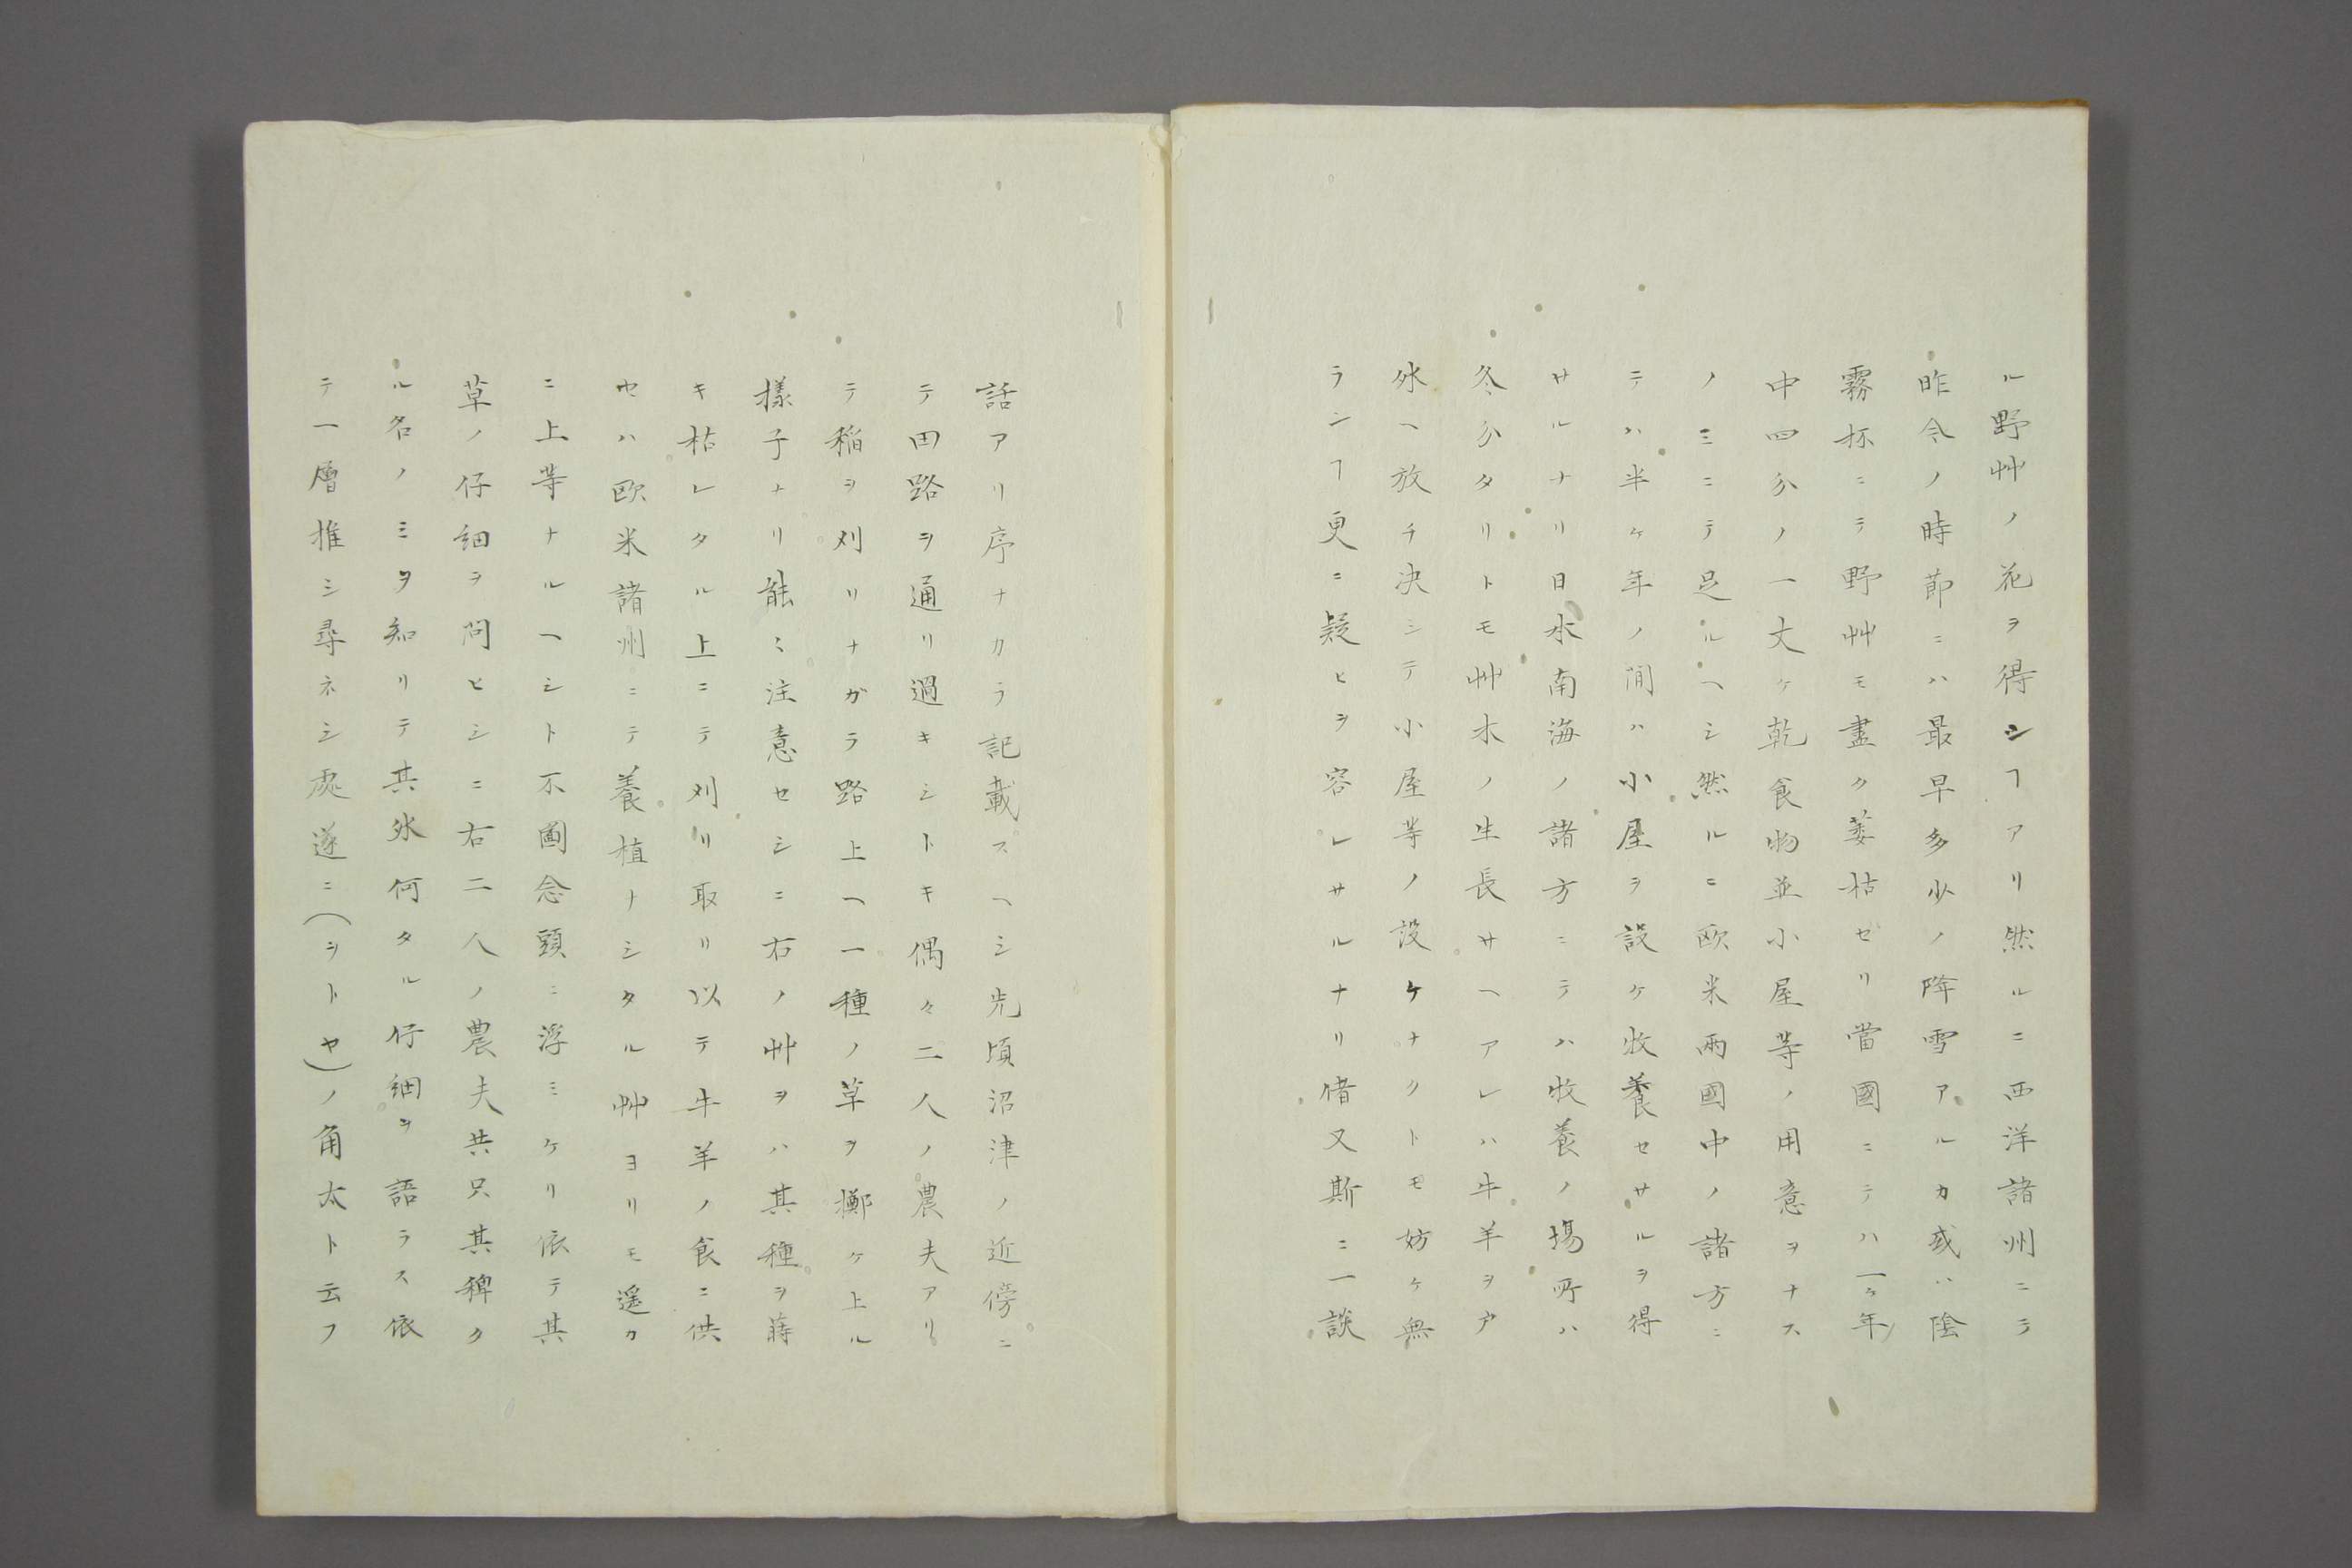 ル野艸ノ花ヲ得シヿアリ然ルニ西洋諸州ニテ
昨今ノ時節ニハ最早多少ノ降雪アルカ或ハ陰
霧抔ニテ野艸モ盡ク萎枯セリ當國ニテハ一ヶ年
中四分ノ一丈ケ乾食物並小屋等ノ用意ヲナス
ノミニテ足ルヘシ然ルニ欧米兩國中ノ諸方ニ
テハ半ヶ年ノ間ハ小屋ヲ設ケ牧養セサルヲ得
サルナリ日本南海ノ諸方ニテハ牧養ノ場所ハ
冬分タリトモ艸木ノ生長サヘアレハ牛羊ヲ戸
外ヘ放チ決シテ小屋等ノ設ケナクトモ妨ケ無
ランヿ更ニ疑ヒヲ容レサルナリ偖又斯ニ一談
話アリ序ナカラ記載スヘシ先頃沼津ノ近傍ニ
テ田路ヲ通リ過キシトキ偶々二人ノ農夫アリ
テ稲ヲ刈リナガラ路上ヘ一種ノ草ヲ擲ケ上ル
樣子ナリ能ミ注意セシニ右ノ艸ヲハ其種ヲ蒔
キ枯レタル上ニテ刈リ取リ以テ牛羊ノ食ニ供
セハ欧米諸州ニテ養植ナシタル艸ヨリモ遥カ
ニ上等ナルヘシト不圖念頭ニ浮ミケリ依テ其
草ノ仔細ヲ問ヒシニ右二人ノ農夫共只其稗ク
ル名ノミヲ知リテ其外何タル仔細ヲ語ラス依
テ一層推シ尋ネシ處遂ニ(ヲトヤ)ノ角太ト云フ